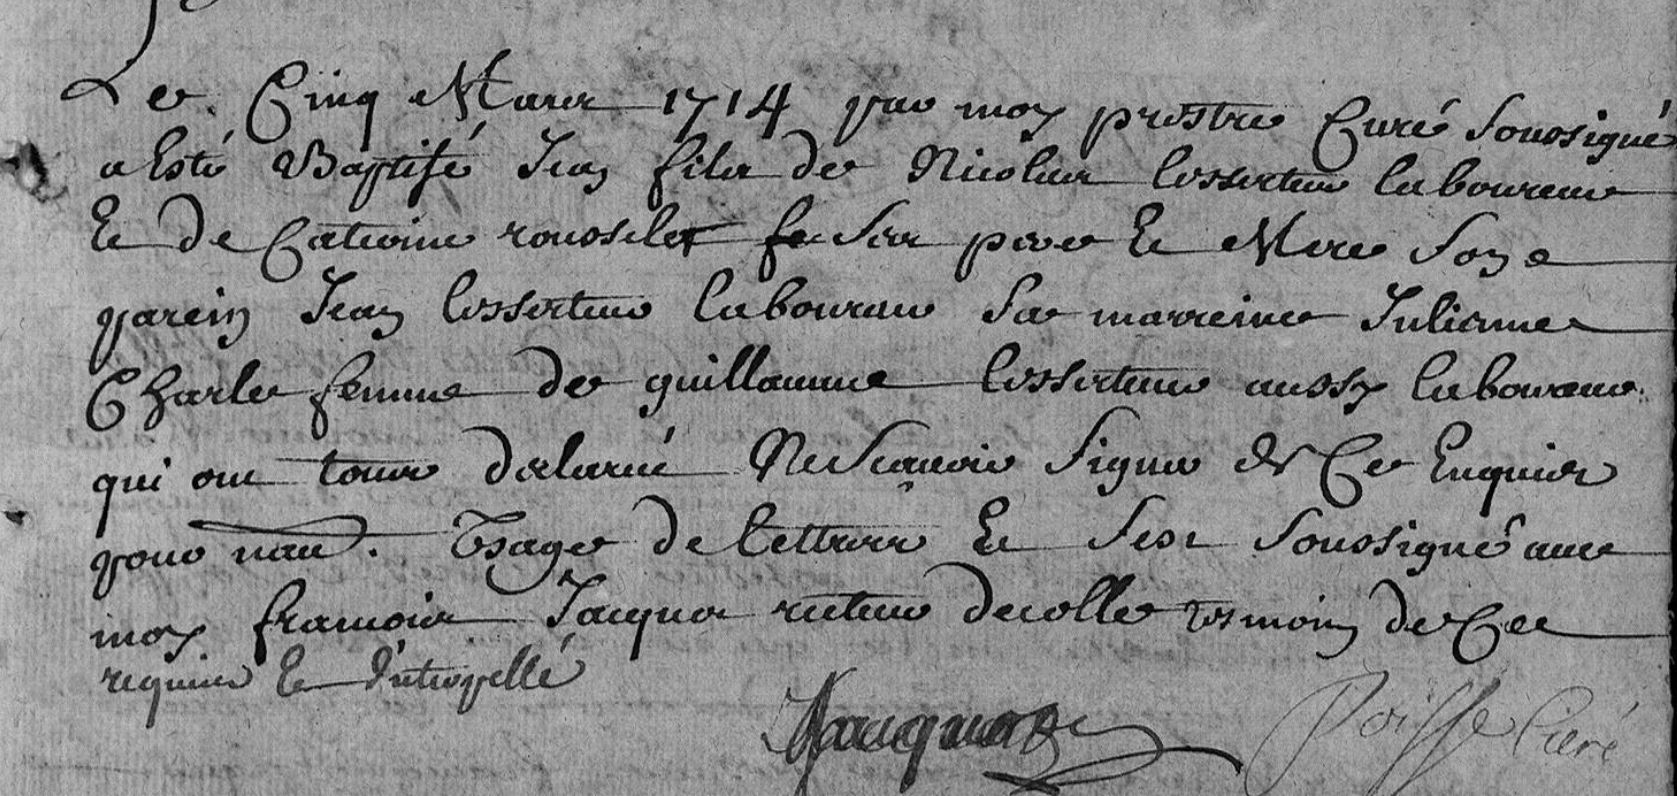 Le Cinq Mars 1714 par moy prestre Curé Soussigné
a Esté Baptisé Jean fils de Nicolas Lesserteur laboureur
Et de Caterine rousselet ses pere Et Mere Son
parein Jean Lesserteur laboureur Sa marreine Julienne
Charle femme de guillaume Lesserteur aussy laboureur
qui ont tour declaré Ne Scavoir Signer de Ce Enquier
pour nau. Vsage de lettres Et Sest Soussigné avec
moy francois Jacquot recteur decolle tesmoin de Ce
requier Et Intropellé
Jacquot Poisse Curé